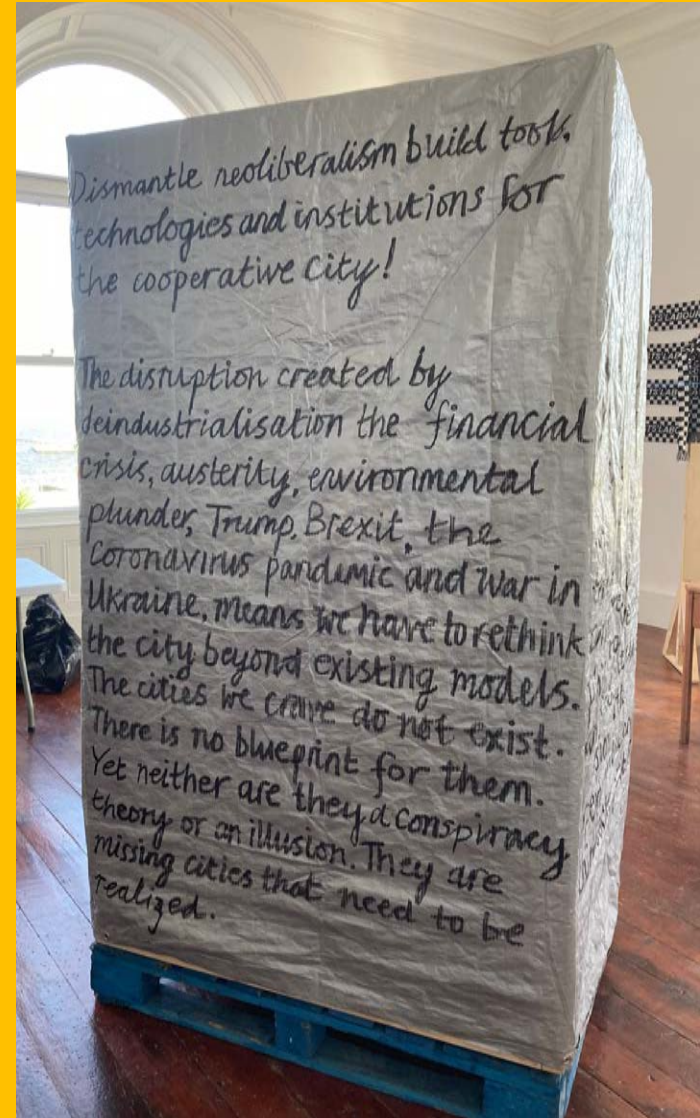 Dismantle neoliberalism build tools,
technologies and institutions for
the cooperative city!
The disruption created by
deindustrialisation the financial
crisis, austerity, environmental
plunder, Trump, Brexit, the
Coronavirus pandemic and war in
Ukraine, means we have to rethink
the city beyond existing models.
The cities we crave do not exist.
There is no blueprint for them.
Yet neither are they a conspiracy
theory or an illusion. They are
missing cities that need to be
realized.